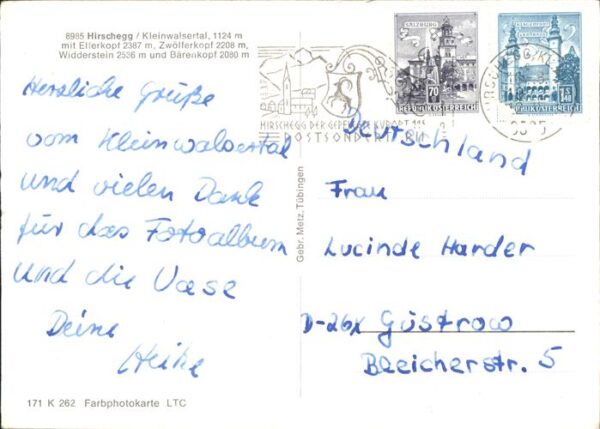 8985 Hirschegg / Kleinwalsertal, 1124 m
mit Ellerkopf 2387 m, Zwölferkopf 2208 m,
Widderstein 2536 m und Bärenkopf 2080 m
Herzliche Grüße
vom Kleinwalsertal
und vielen Dank
für das Fotoalbum
und die Vase
Deine
Heike
171 K 262 Farbphotokarte LTC
Gebr. Metz, Tübingen
SALZBURG
70
REPUBLIK ÖSTERREICH
KLAGENFURT
LANDHAUS
1S40
REPUBLIK ÖSTERREICH
HIRSCHEGG DER GEPFLEGTE KURORT
POSTSONDER
HIRSCHEGG/KL
Deutschland
Frau
Lucinde Harder
D-26x Güstrow
Bleicherstr. 5